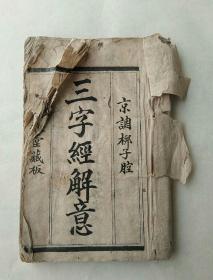 京調梆子腔
三字經解意
堂藏板